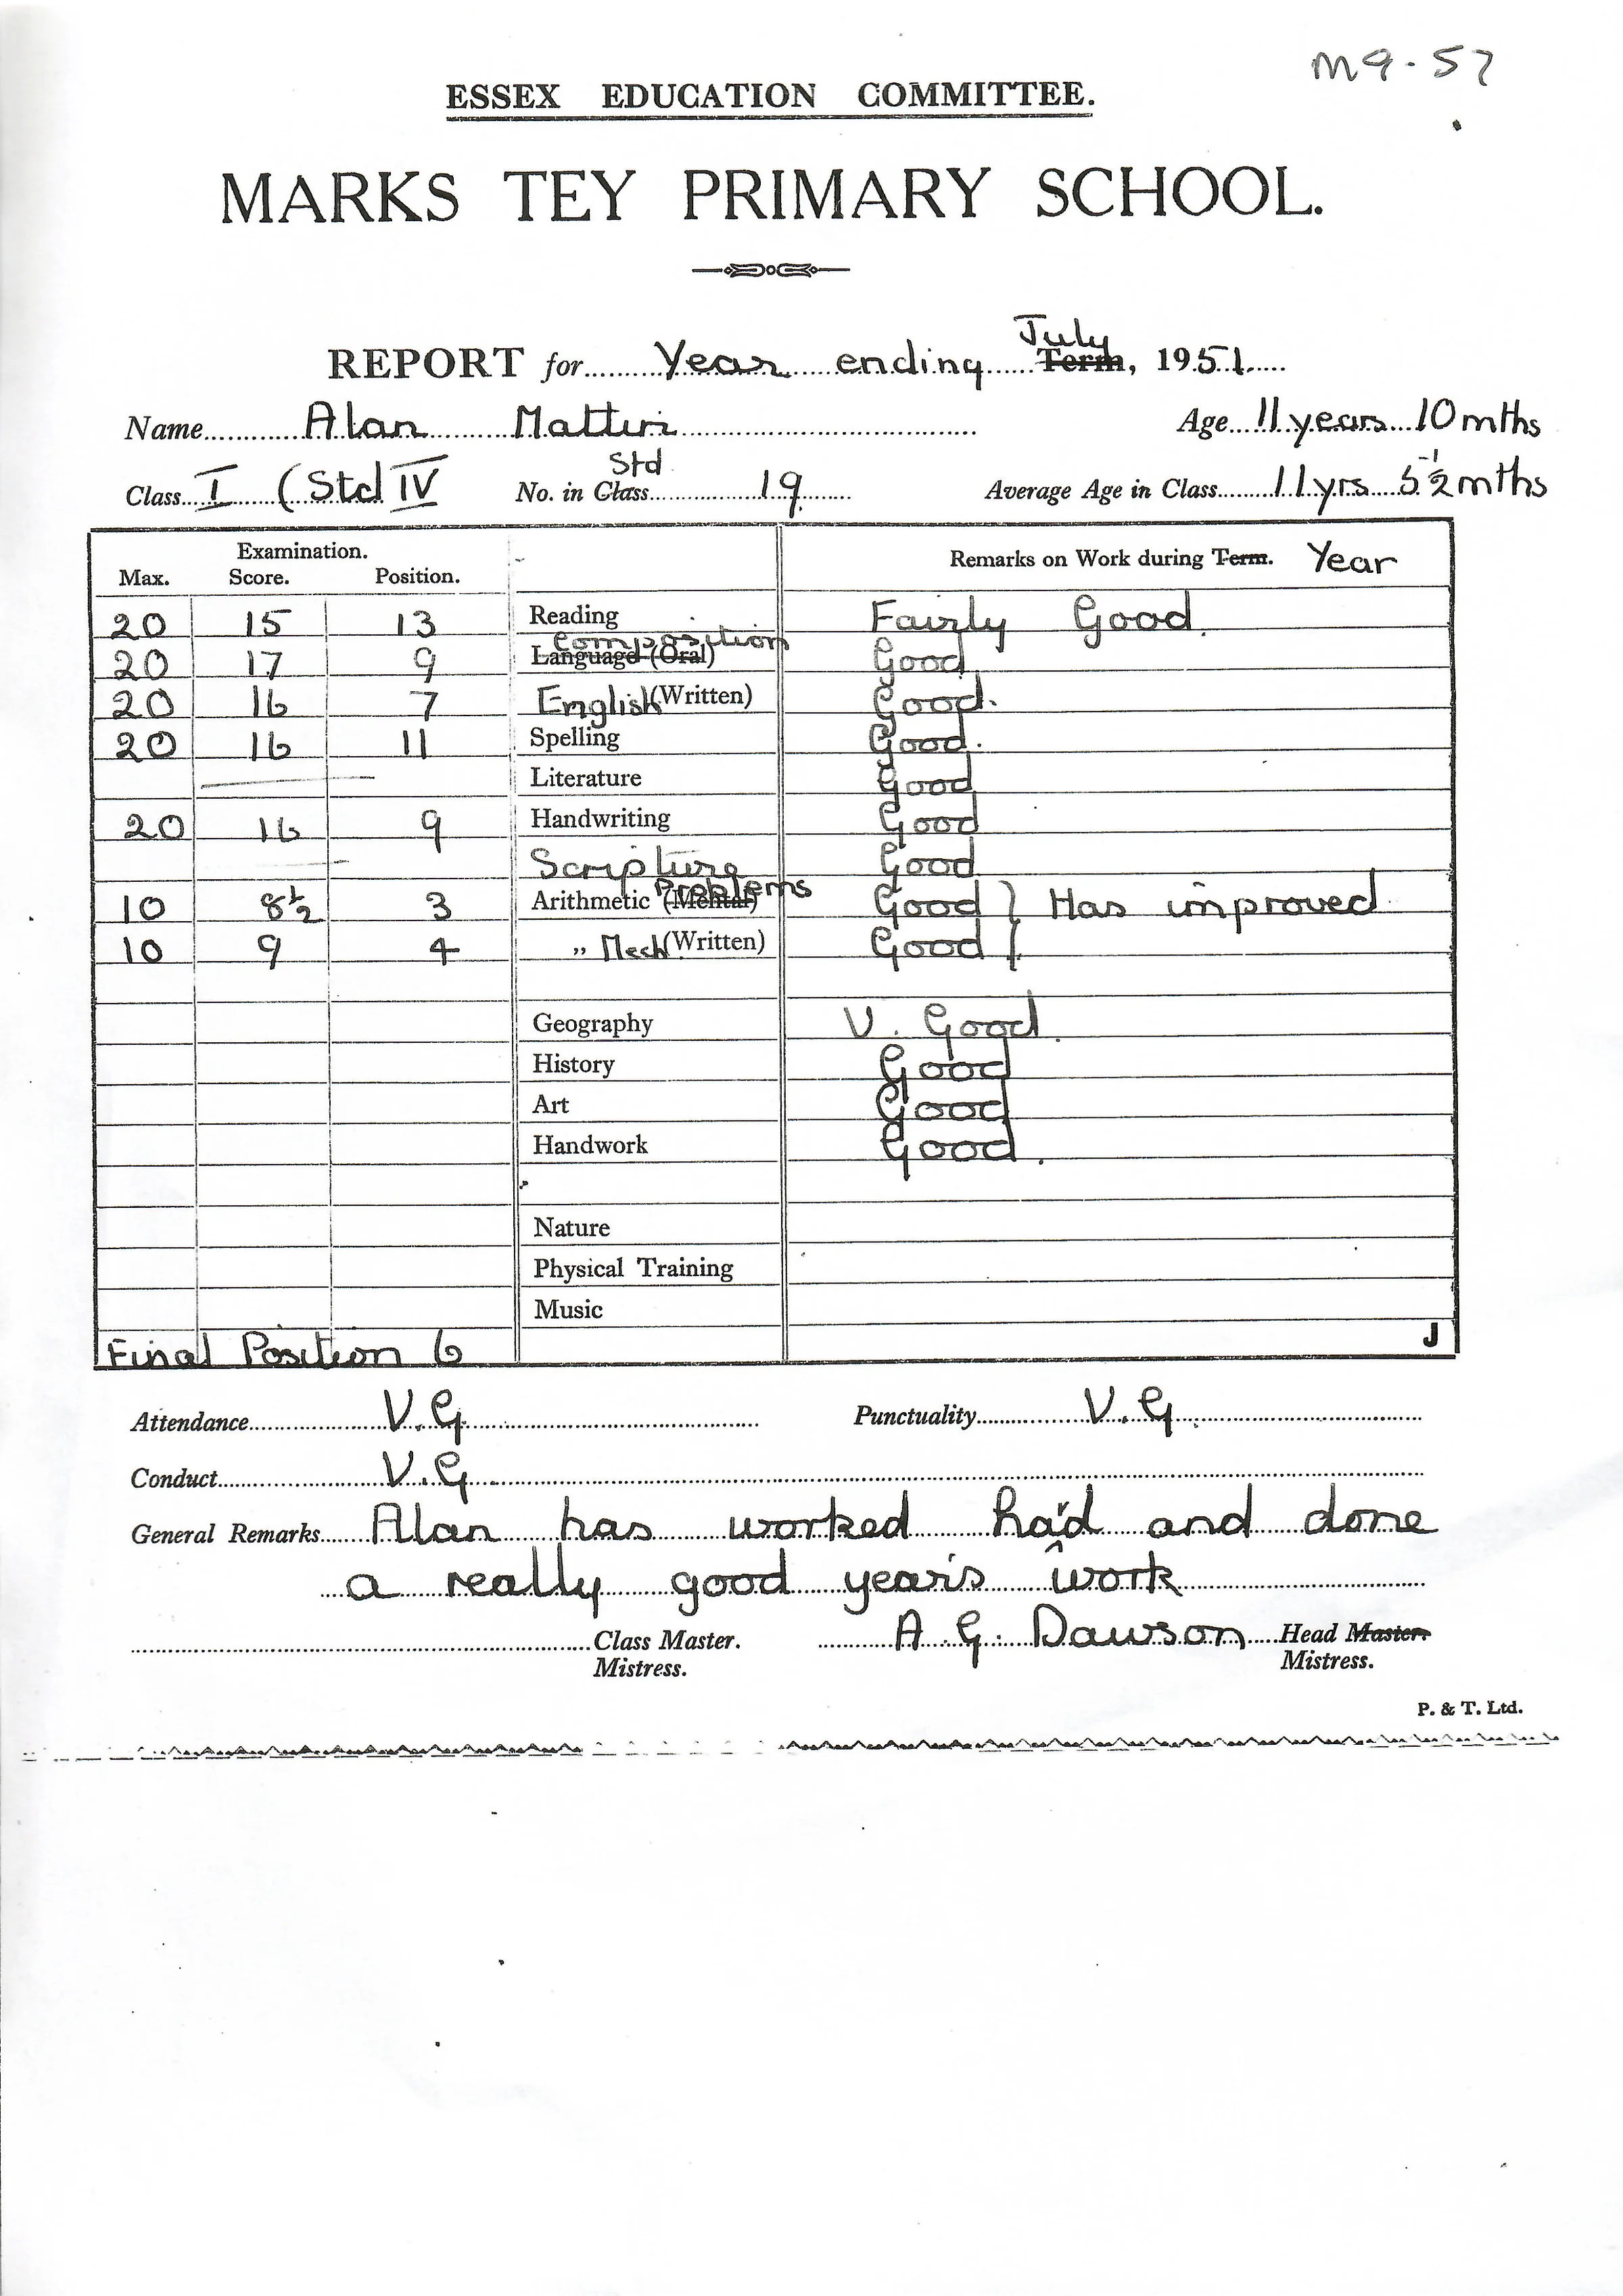 M9-57
ESSEX EDUCATION COMMITTEE.
MARKS TEY PRIMARY SCHOOL.
July
REPORT for Year ending Term, 1951.
Name Alan Age 11 years 10 mths
Std
Class I (Std IV No. in Class 19 Average Age in Class 11 yrs 5½ mths
Examination.
Max. Score. Position. Remarks on Work during Term. Year
20 15 13 Reading Fairly Good
Composition
20 17 9 Language (Oral) Good
20 16 7 English (Written) Good.
20 16 11 Spelling Good.
Literature Good
20 16 9 Handwriting Good
Scripture Good
Problems
10 8½ 3 Arithmetic (Mental) Good } Has improved
10 9 4 „ Mech (Written) Good }
Geography V. Good.
History Good
Art Good
Handwork Good.
Nature
Physical Training
Music
Final Position 6 J
Attendance V.G. Punctuality V.G.
Conduct V.G.
General Remarks Alan has worked ha'd and done
a really good year's work
Class Master. A. G. Dawson Head Master.
Mistress. Mistress.
P. & T. Ltd.